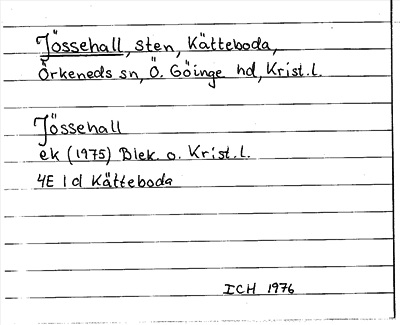 Jössehall, sten, Kätteboda,
Örkeneds sn, Ö. Göinge hd, Krist.l.
Jössehall
ek (1975) Blek. o. Krist.l.
4E 1d Kätteboda
ICH 1976